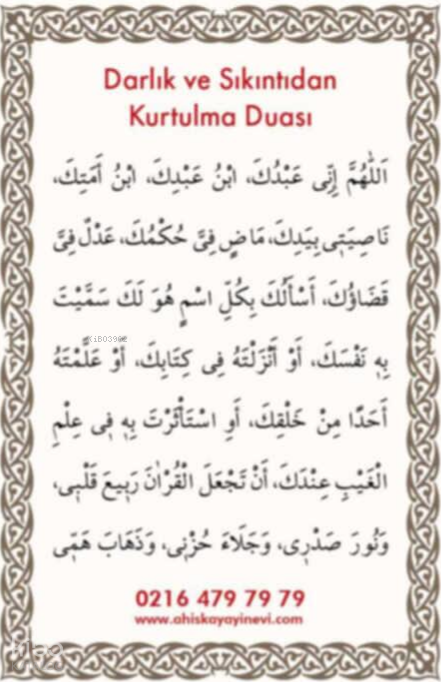 Darlık ve Sıkıntıdan
Kurtulma Duası
اَللّٰهُمَّ اِنِّى عَبْدُكَ، ابْنُ عَبْدِكَ، ابْنُ اَمَتِكَ،
نَاصِيَتِى بِيَدِكَ، مَاضٍ فِىَّ حُكْمُكَ، عَدْلٌ فِىَّ
قَضَاؤُكَ، أَسْأَلُكَ بِكُلِّ اسْمٍ هُوَ لَكَ سَمَّيْتَ
بِهِ نَفْسَكَ، أَوْ أَنْزَلْتَهُ فِى كِتَابِكَ، أَوْ عَلَّمْتَهُ
أَحَدًا مِنْ خَلْقِكَ، أَوِ اسْتَأْثَرْتَ بِهِ فِى عِلْمِ
الْغَيْبِ عِنْدَكَ، أَنْ تَجْعَلَ الْقُرْاٰنَ رَبِيعَ قَلْبِى،
وَنُورَ صَدْرِى، وَجَلَاءَ حُزْنِى، وَذَهَابَ هَمِّى
0216 479 79 79
www.ahiskayayinevi.com